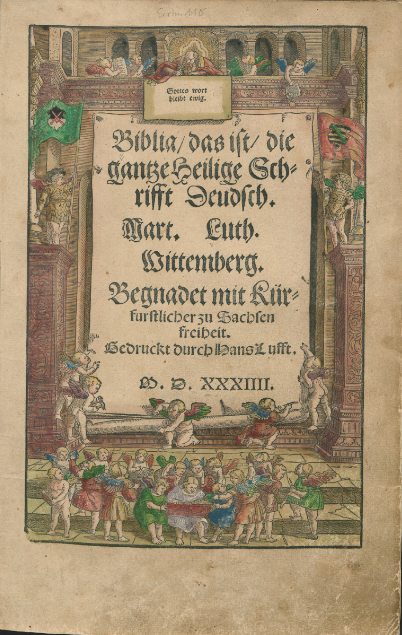 Gottes wort
bleibt ewig.
Biblia/ das ist/ die
gantze Heilige Sch-
rifft Deudsch.
Mart. Luth.
Wittemberg.
Begnadet mit Kür-
furstlicher zu Sachsen
freiheit.
Gedruckt durch Hans Lufft.
M. D. XXXIIII.